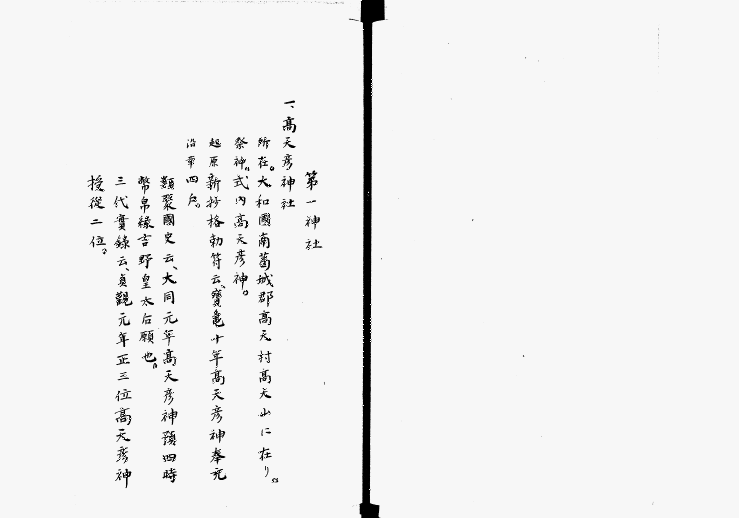 第一神社
一、高天彦神社
所在。大和國南葛城郡高天村高天山に在り。
祭神、式内高天彦神。
起原 新抄格勅符云、寳龜十年高天彦神奉充
四戸。
沿革
類聚國史云、大同元年高天彦神預四時
幣帛縁吉野皇太后願也。
三代實録云、貞觀元年正三位高天彦神
授從二位。